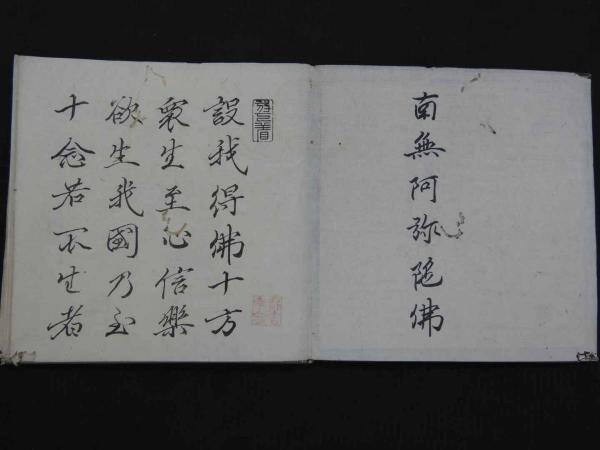 南無阿弥陀佛
設我得佛十方
衆生至心信樂
欲生我國乃至
十念若不生者